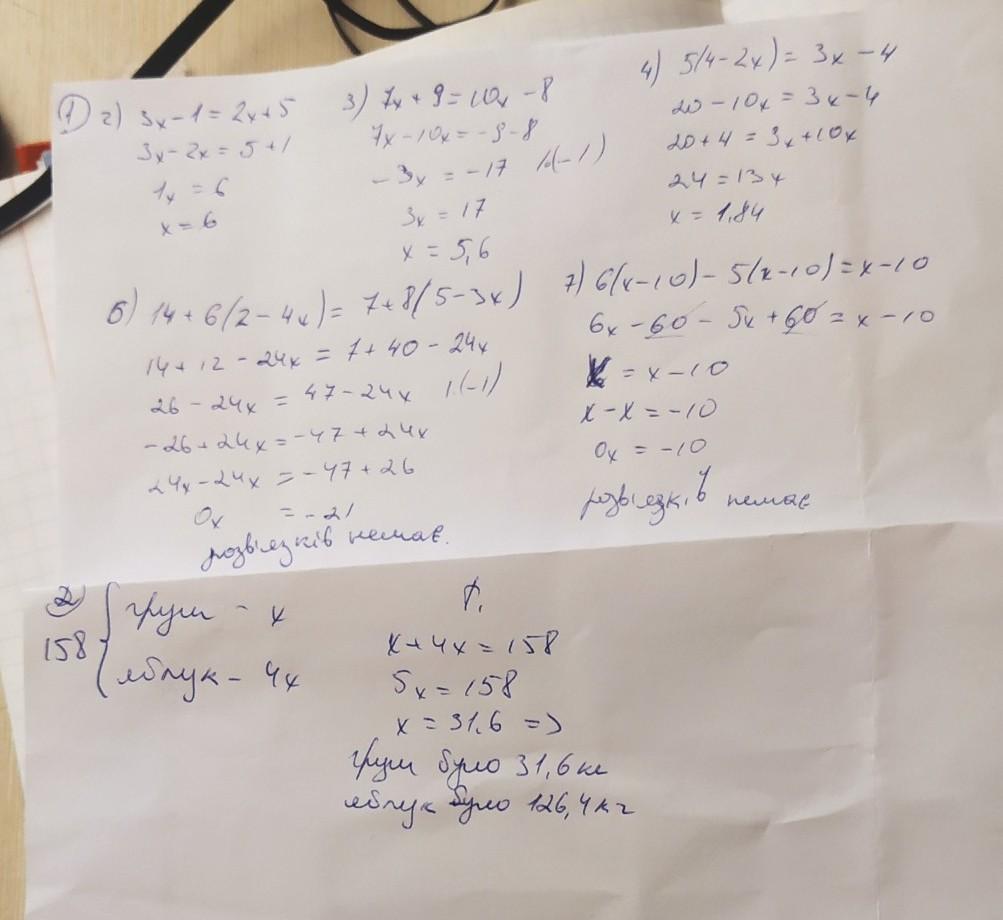 1) 2) 3x-1=2x+5
3x-2x=5+1
1x=6
x=6
3) 7x+9=10x-8
7x-10x=-9-8
-3x=-17 |·(-1)
3x=17
x=5,6
4) 5(4-2x)=3x-4
20-10x=3x-4
20+4=3x+10x
24=13x
x=1,84
6) 14+6(2-4x)=7+8(5-3x)
14+12-24x=7+40-24x
26-24x=47-24x |·(-1)
-26+24x=-47+24x
24x-24x=-47+26
0x=-21
розв'язків немає.
7) 6(x-10)-5(x-10)=x-10
6x-60-5x+60=x-10
x=x-10
x-x=-10
0x=-10
розв'язків немає
2)
158 { груш - x
яблук - 4x
x+4x=158
5x=158
x=31,6 =>
груш було 31,6 кг
яблук було 126,4 кг